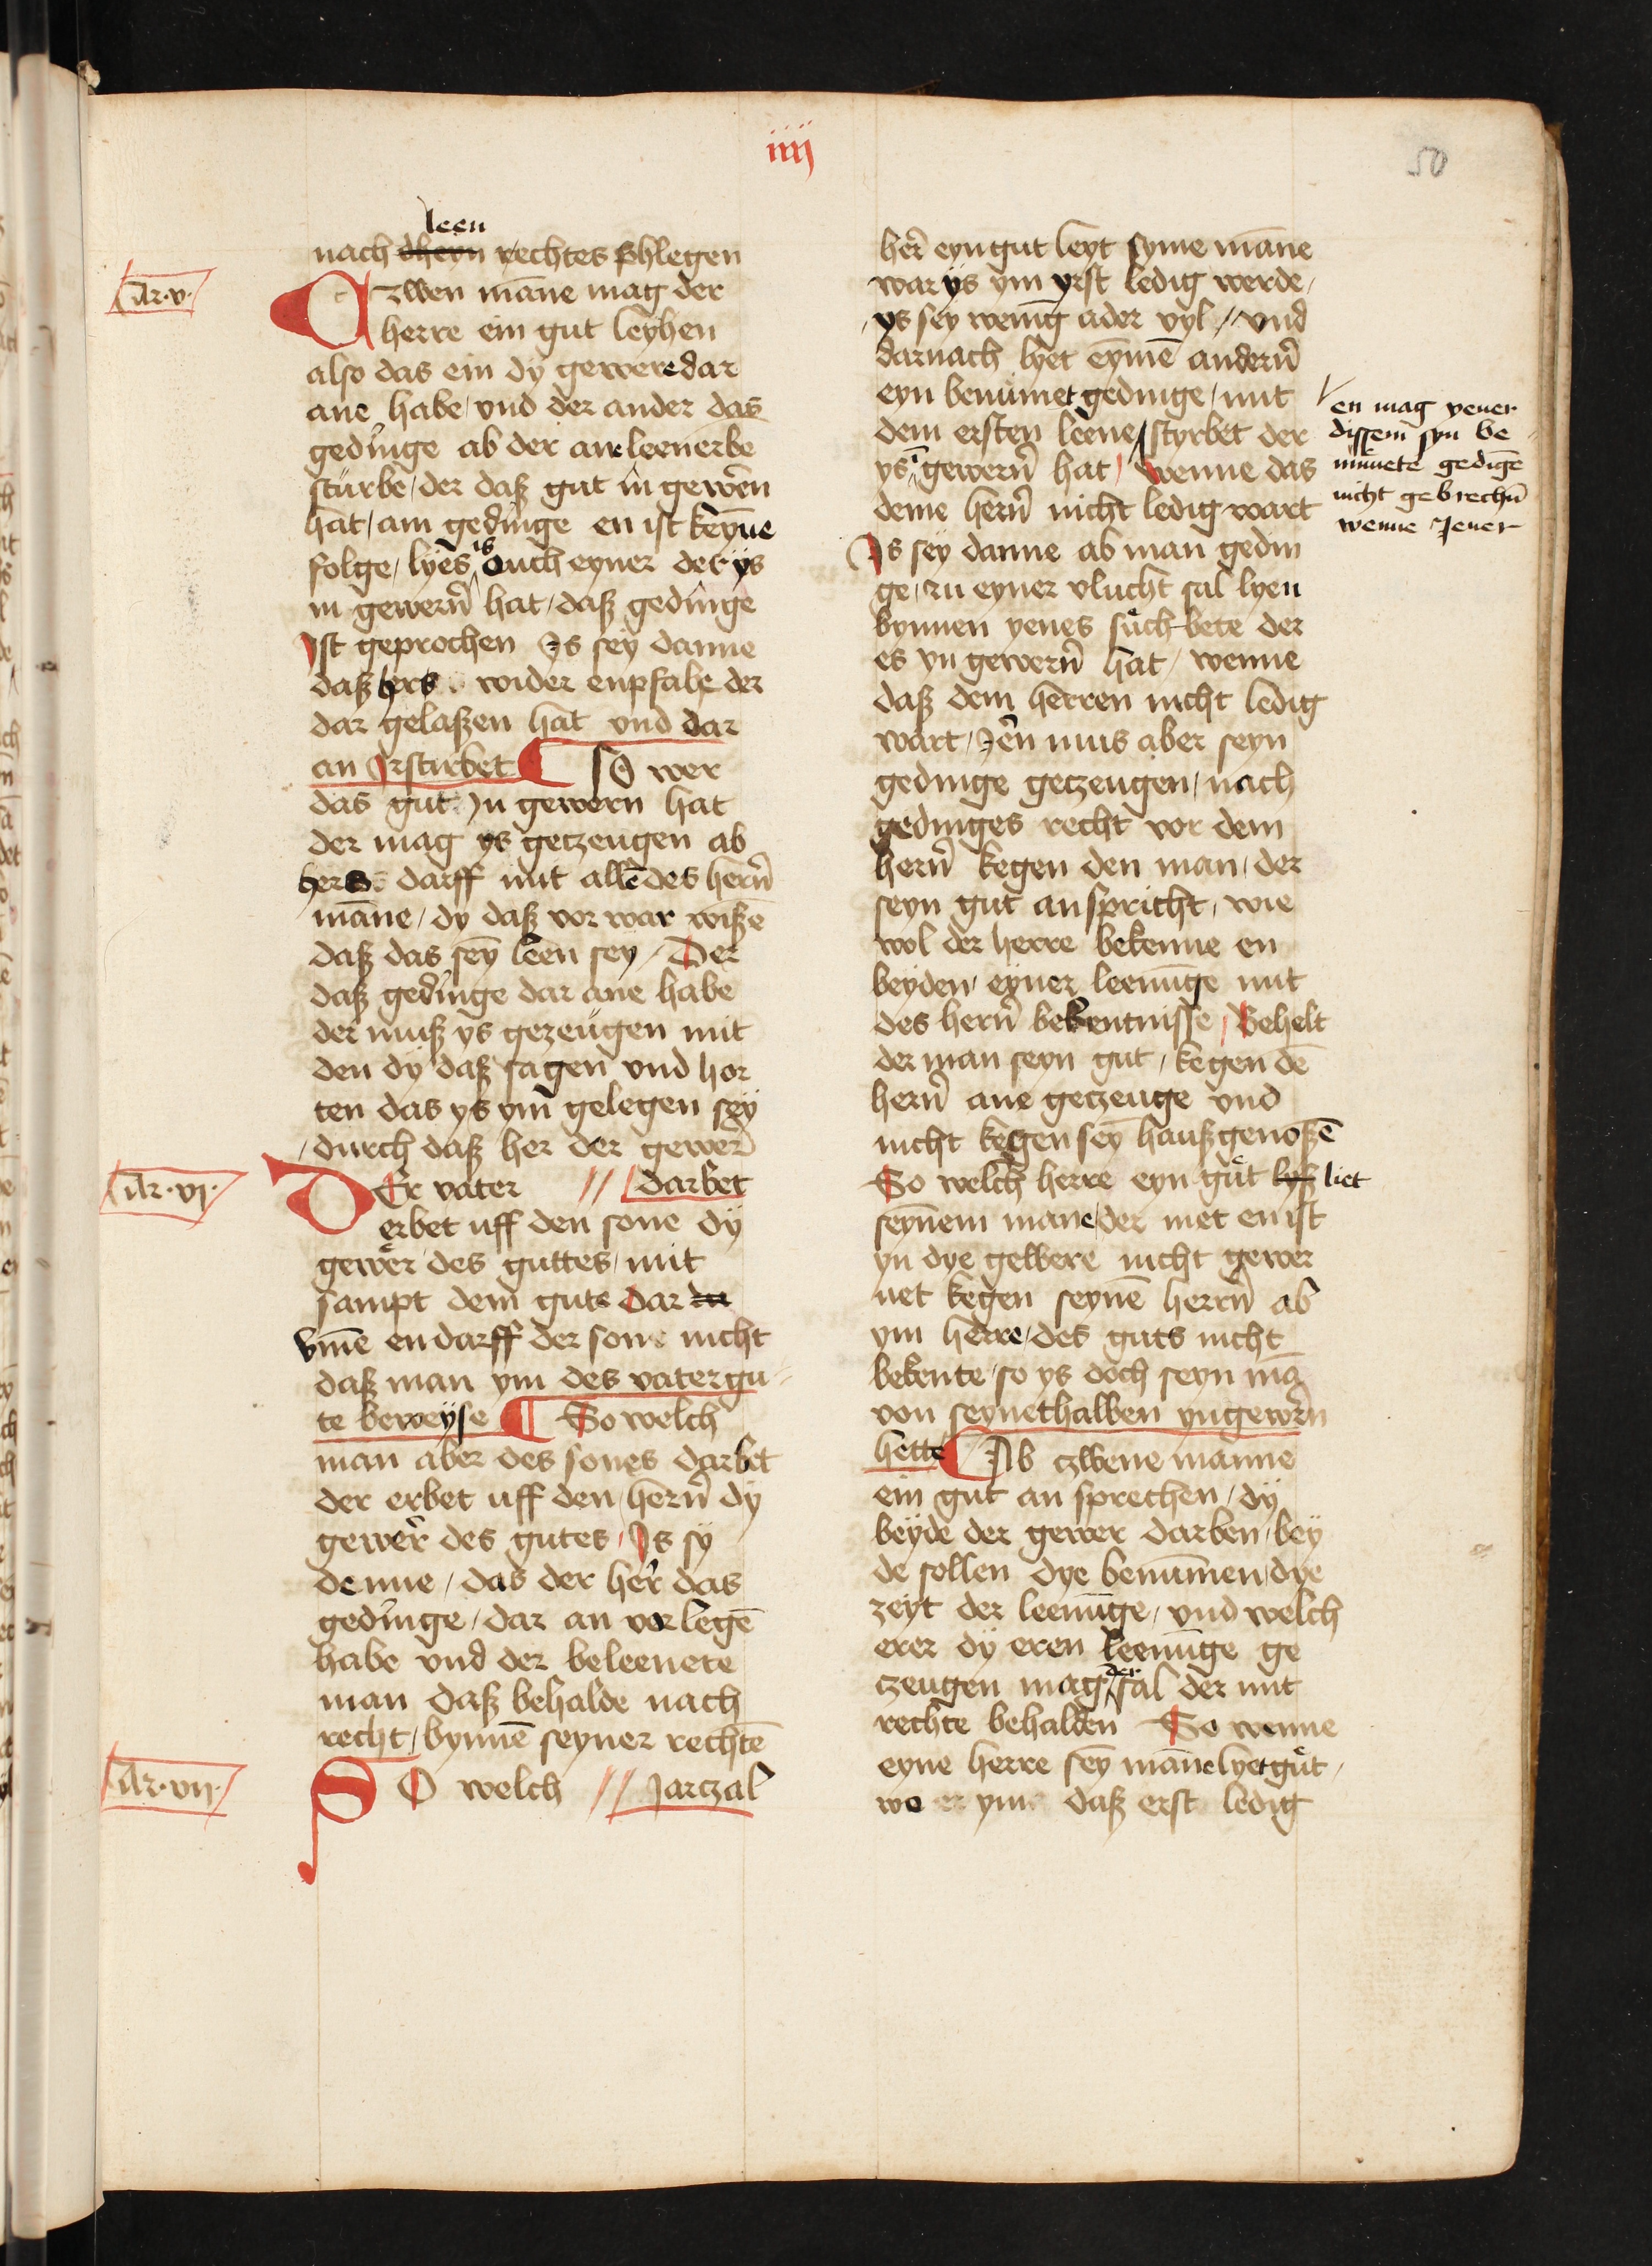 iiij
50
leen
nach dheyn rechtes phlegen
Ar·v·
Czwen māne mag der
herre ein gut leyhen
also das ein dy gewere dar
ane habe / vnd der ander das
gedinge ab der ane leenerbe
sturbe / der daß gut in gewern
hat / am gedinge en ist keyne
folge / lyes is Ouch eyner der ys
in gewern̄ hat / daß gedinge
Ist geprochen Is sey danne
daß hers wider enpfahe der
dar gelaßen hat vnd dar
an Irstirbet SO wer
das gut In gewern hat
der mag ys getzeugen ab
hers darff mit allē des hern̄
māne / dy daß vor war wißē
daß das seȳ leen sey / Der
daß gedinge dar ane habe
der muß ys gezeugen mit
den dy daß sagen vnd hor
ten das ys ym gelegen sey
/ durch daß her der gewer
Ar·vi·
DEr vater // darbet
erbet uff den sone dy
gewer des guttes / mit
sampt dem gute Dar du
vmē en darff der sone nicht
daß man ym des vater gu
te beweyse So welch
man aber des sones darbet
der erbet uff den hern̄ dy
gewer des gutes / Is sy
denne / das der her das
gedinge / dar an vor legē
habe vnd der beleenete
man daß behalde nach
recht / bynnē seyner rechtē
Ar·vii·
SO welch // Jarczal
her eyn gut leyt syme māne
war ys ym yrst ledig werde /
/ ys sey wenig ader vyl / vnd
darnach lyet eymē andern̄
eyn benūmet gedinge / mit
dem ersten leene / styrbet der
ys ī gewern̄ hat / Wenne das
deme hern̄ nicht ledig wart
en mag yener
dissem syn be
nūnete gedigē
nicht gebrechn̄
wenne Jener
Is sey danne ab man gedin
ge / zu eyner vlucht sal lyen
bynnen yenes suchbete der
es yn gewern̄ hat / wenne
daß dem herren nicht ledig
wart / Jen mus aber seyn
gedinge getzeugen / nach
gedinges recht vor dem
hern̄ kegen den man / der
seyn gut anspricht / wie
wol der herre bekenne en
beyden / eyner leenūge mit
des hern̄ bekentnisse / Behelt
der man seyn gut / kegen dē
hern̄ ane getzeuge vnd
nicht kegen seȳ haußgenoßē
So welch herre eyn gut lyß liet
seynem mane / der niet en ist
yn dye gewere nicht gewer
net kegen seynē herrn̄ ab
ym herre / des guts nicht
bekente / so ys doch seyn mā
von seynethalben yngewern
hette Ab czwene manne
ein gut an sprechen / dy
beyde der gewer darben / bey
de sollen dye benūmen / dye
zeyt der leenūge / vnd welch
erer dy eren leenūge ge
czeugen mag der sal der mit
rechte behalden So wenne
eyne herre seȳ māne lyet gut /
wo er yme daß erst ledig